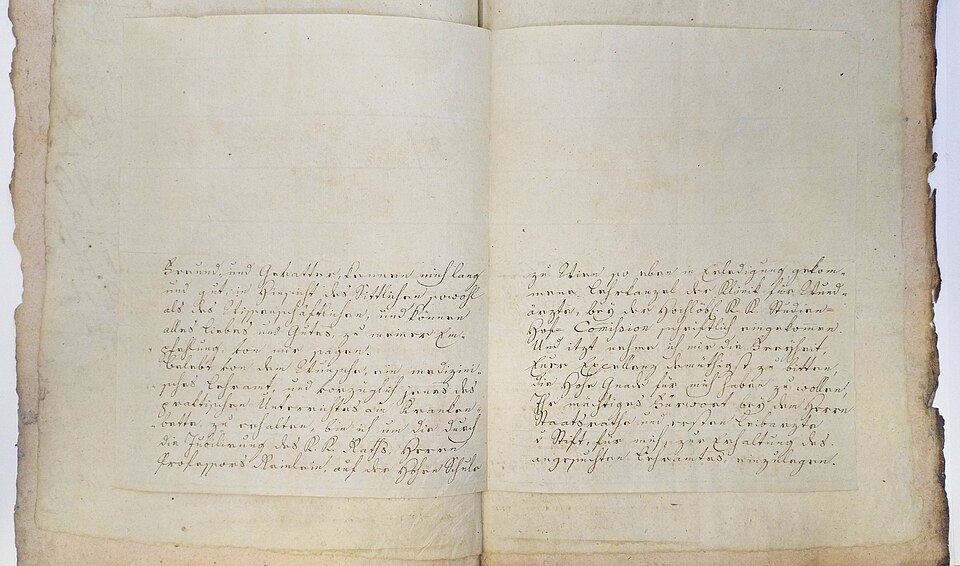 Freund, und Gevatter, kennen mich lang
und gut in Hinsicht des Sittlichen sowohl
als des Wissenschaftlichen, und können
alles Liebes und Gutes, zu meiner Em-
pfehlung von mir sagen.
Belebt von dem Wunsche, ein medizini-
sches Lehramt, und vorzüglich jenes des
praktischen Unterrichtes am Kranken-
bette, zu erhalten, bin ich um die durch
die Jubilirung des K. K. Raths, Herrn
Professors Reinlein, auf der Hohen Schule
zu Wien so eben in Erledigung gekom-
mene Lehrkanzel der Klinik für Wund-
ärzte, bey der Hochlöbl. K. K. Studien-
Hof-Comission schriftlich eingekommen.
Und itzt nehme ich mir die Freyheit,
Eure Exzellenz demüthigst zu bitten,
die Hohe Gnade für mich haben zu wollen,
Ihr mächtiges Fürwort bey dem Herrn
Staatsrathe und ersten Leibarzte
v Stift, für mich, zur Erhaltung des
angesuchten Lehramtes, einzulegen.